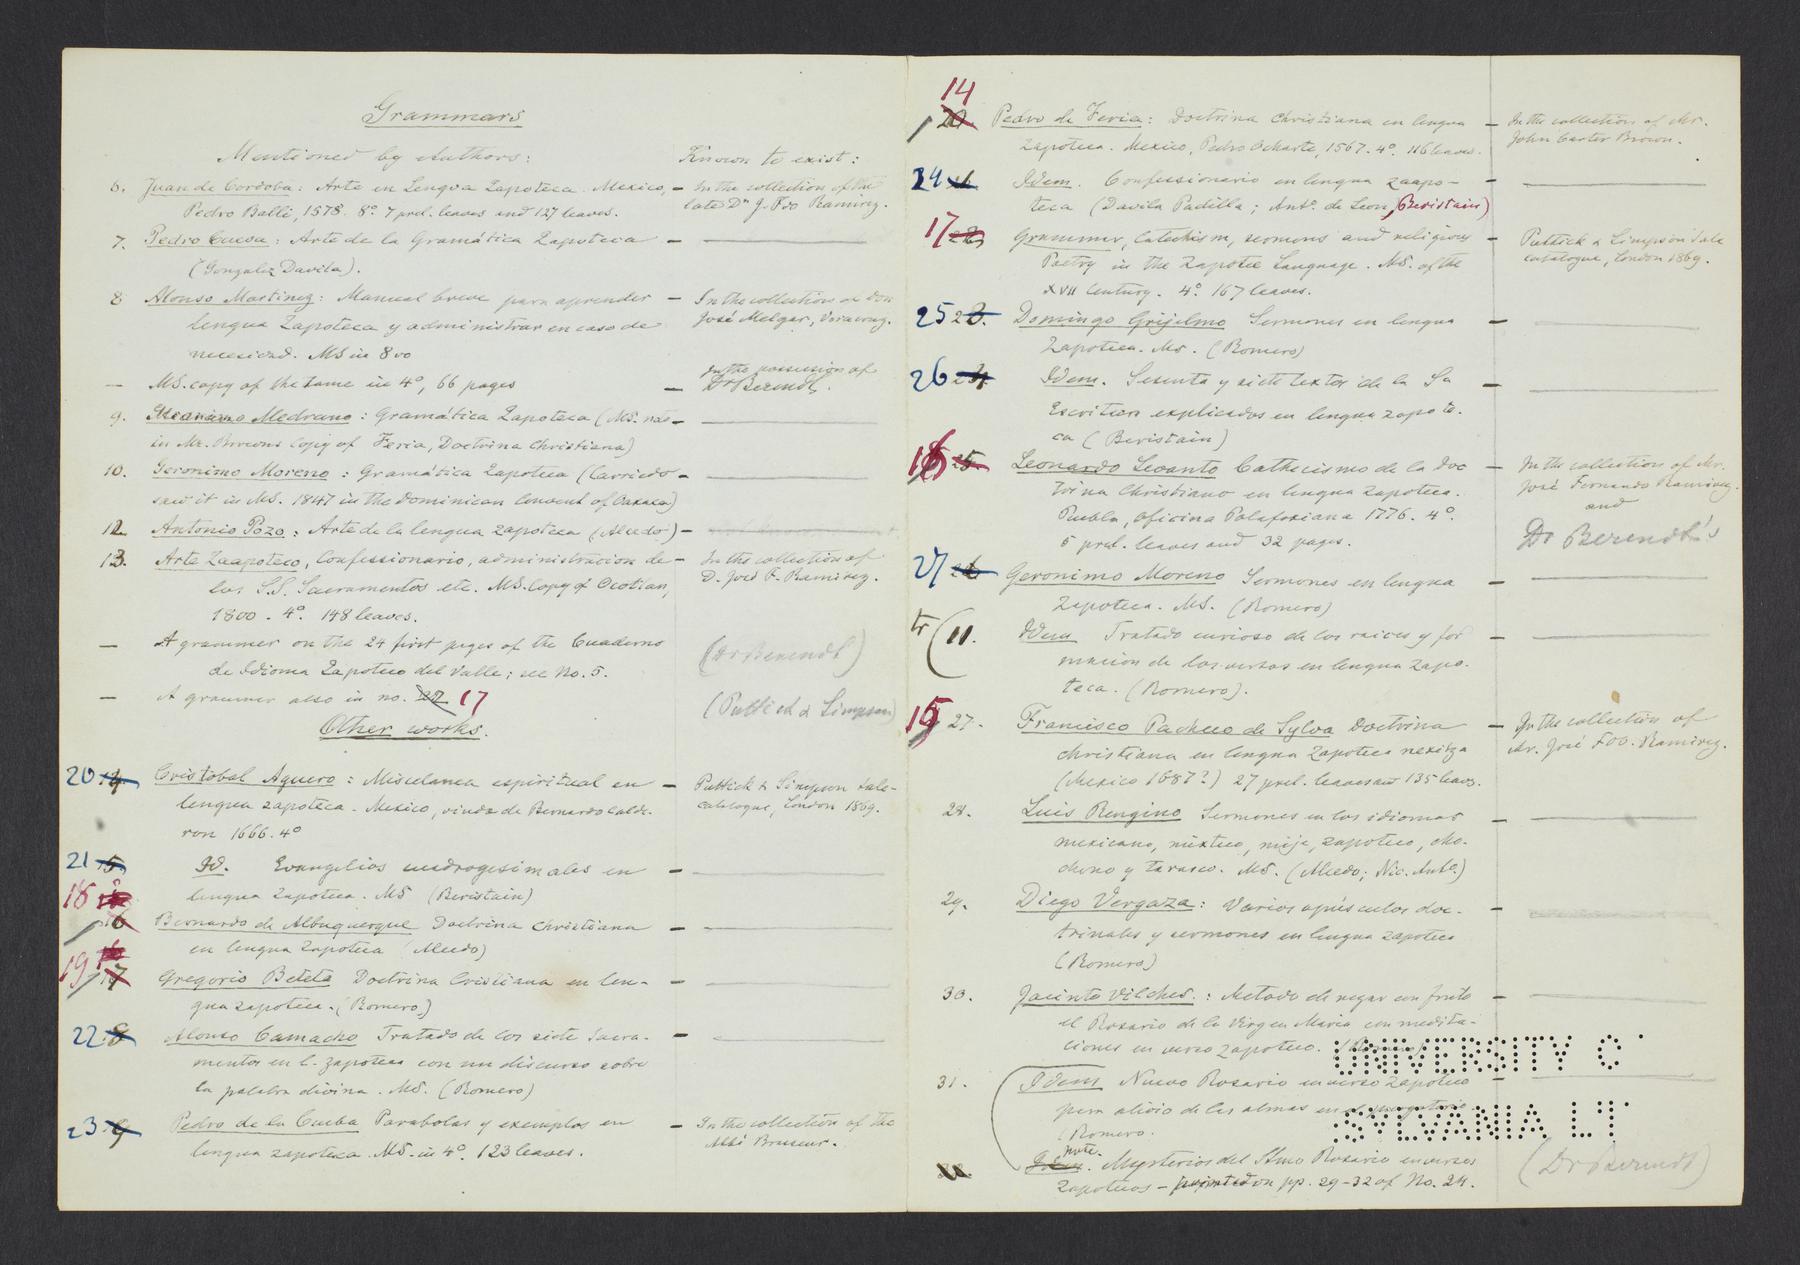 Grammars
Mentioned by Authors: Known to exist:
6. Juan de Cordoba: Arte en Lengua Zapoteca. Mexico, – In the collection of the
Pedro Balli, 1578. 8º. 7 prel. leaves and 127 leaves. late Dn J. Fdo Ramirez.
7. Pedro Cueva: Arte de la Gramática Zapoteca –
(Gonzalez Davila).
8 Alonso Martinez: Manual breve para aprender – In the collection of Don
lengua Zapoteca y administrar en caso de José Melgar, Veracruz.
necesidad. MS in 8vo
– MS. copy of the same in 4º, 66 pages – In the possession of
Dr Berendt.
9. Medrano: Gramática Zapoteca (MS. not –
in Mr. Browns copy of Feria, Doctrina Christiana)
10. Geronimo Moreno: Gramática Zapoteca (Carriedo –
saw it in MS. 1847 in the Dominican Convent of Oaxaca)
12. Antonio Pozo: Arte de la lengua zapoteca (Alcedo) –
13. Arte Zaapoteco, Confessionario, administracion de – In the collection of
los S.S. Sacramentos etc. MS. Copy of Ocotlan, D. José F. Ramirez.
1800. 4º. 148 leaves.
– A grammer on the 24 first pages of the Cuaderno (Dr Berendt)
de Idioma Zapoteco del Valle; see No. 5.
– A grammer also in no. 22 17 (Puttick & Simpson)
Other works.
20 Cristobal Aguero: Miscelanea espiritual en – Puttick & Simpson sale-
lengua zapoteca. Mexico, viuda de Bernardo Calde- catalogue, London 1869.
ron 1666. 4º
21 Id. Evangelios cuadragesimales en –
lengua zapoteca. MS (Beristain)
18 16 Bernardo de Albuquerque Doctrina Christiana –
en lengua Zapoteca (Alcedo)
19 17 Gregorio Beteta Doctrina Cristiana en len- –
gua zapoteca. (Romero)
22 8 Alonso Camacho Tratado de los siete Sacra- –
mentos en l. zapoteca con un discurso sobre
la palabra divina. MS. (Romero)
23 9 Pedro de la Cueba Parabolas y exemplos en – In the collection of the
lengua zapoteca. MS. in 4º. 123 leaves. Abbé Brasseur.
14
20 Pedro de Feria: Doctrina Christiana en lengua – In the collection of Mr.
zapoteca. Mexico, Pedro Ocharte, 1567. 4º. 116 leaves. John Carter Brown.
24 Idem. Confessionario en lengua zaapo- –
teca (Davila Padilla; Antº. de Leon, Beristain)
17 22 Grammer, Catechism, sermons and religious – Puttick & Simpson Sale
Poetry in the Zapotec Language. MS. of the catalogue, London 1869.
XVII Century. 4º. 167 leaves.
25 23. Domingo Grijelmo Sermones en lengua –
Zapoteca. Ms. (Romero)
26 24 Idem. Sesenta y siete textos de la Sa –
Escritura explicados en lengua zapote-
ca (Beristain)
25 Leonardo Levanto Cathecismo de la Doc – In the collection of Mr.
trina Christiano en lengua zapoteca. José Fernando Ramirez.
Puebla, oficina Palafoxiana 1776. 4º. and
5 prel. leaves and 32 pages. Dr Berendt's
27 26 Geronimo Moreno Sermones en lengua –
Zapoteca. MS. (Romero)
tr (11. Idem Tratado curioso de las raices y for –
macion de los versos en lengua zapo-
teca. (Romero).
15 27. Francisco Pacheco de Sylva Doctrina – In the collection of
christiana en lengua zapoteca nexitza Mr. José Fdo. Ramirez.
(Mexico 1687?) 27 prel. leaves and 135 leaves.
28. Luis Rengino Sermones en los idiomas –
mexicano, mixteco, mije, zapoteco, cho-
chono y tarasco. MS. (Alcedo; Nic. Antº.)
29. Diego Vergaza: Varios opúsculos doc- –
trinales y sermones en lengua zapoteca
(Romero)
30. Jacinto Vilches.: Metodo de regar con fruto –
el Rosario de la Virgen Maria con medita-
ciones en verso zapoteco.
UNIVERSITY O
31. Idem Nuevo Rosario en verso zapoteco –
para alivio de las almas en el purgatorio.
SYLVANIA LI
(Romero.
note. Mysterios del Smo Rosario en versos (Dr Berendt)
zapotecos – printed on pp. 29-32 of No. 24.